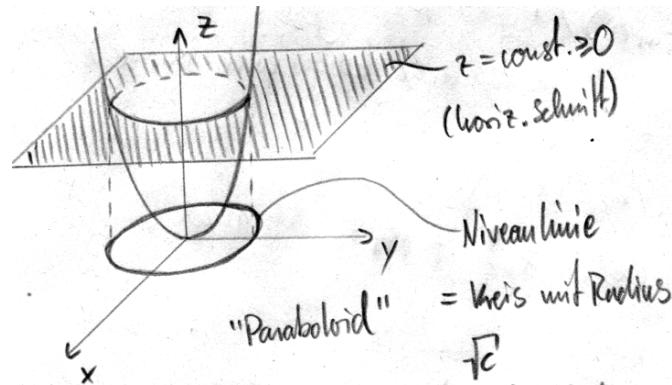 z
z = const. ≥ 0
(horiz. Schnitt)
y
Niveaulinie
= Kreis mit Radius
√c
"Paraboloid"
x